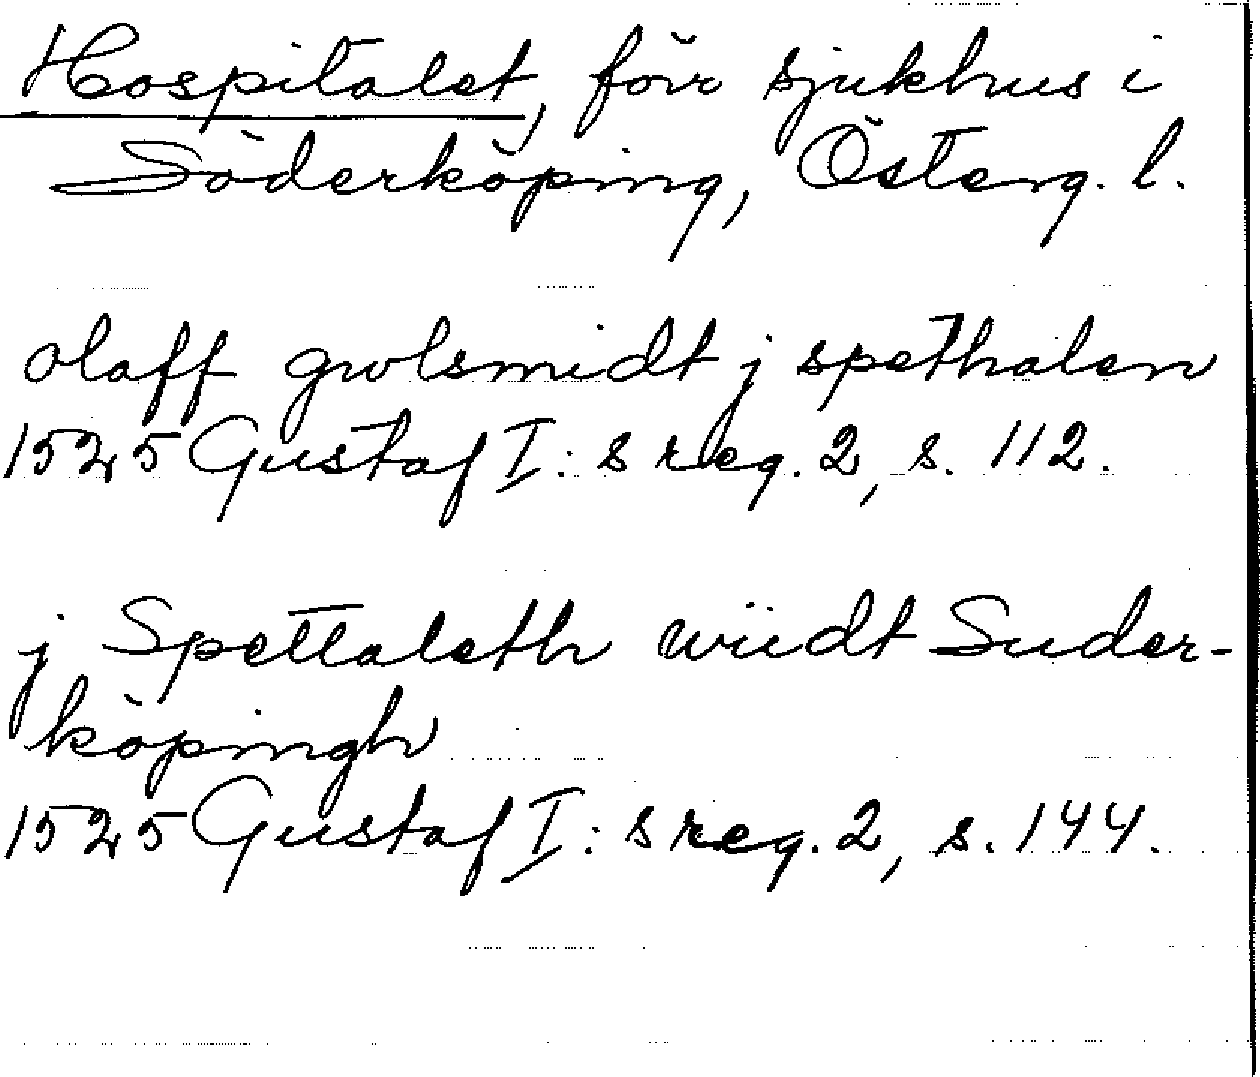 Hospitalet, förr sjukhus i
Söderköping, Österg. l.
olaff gwlsmidt j spethalen
1525 Gustaf I:s reg. 2, s. 112.
j Spettaleth widt Suder-
köpingh
1525 Gustaf I:s reg. 2, s. 144.